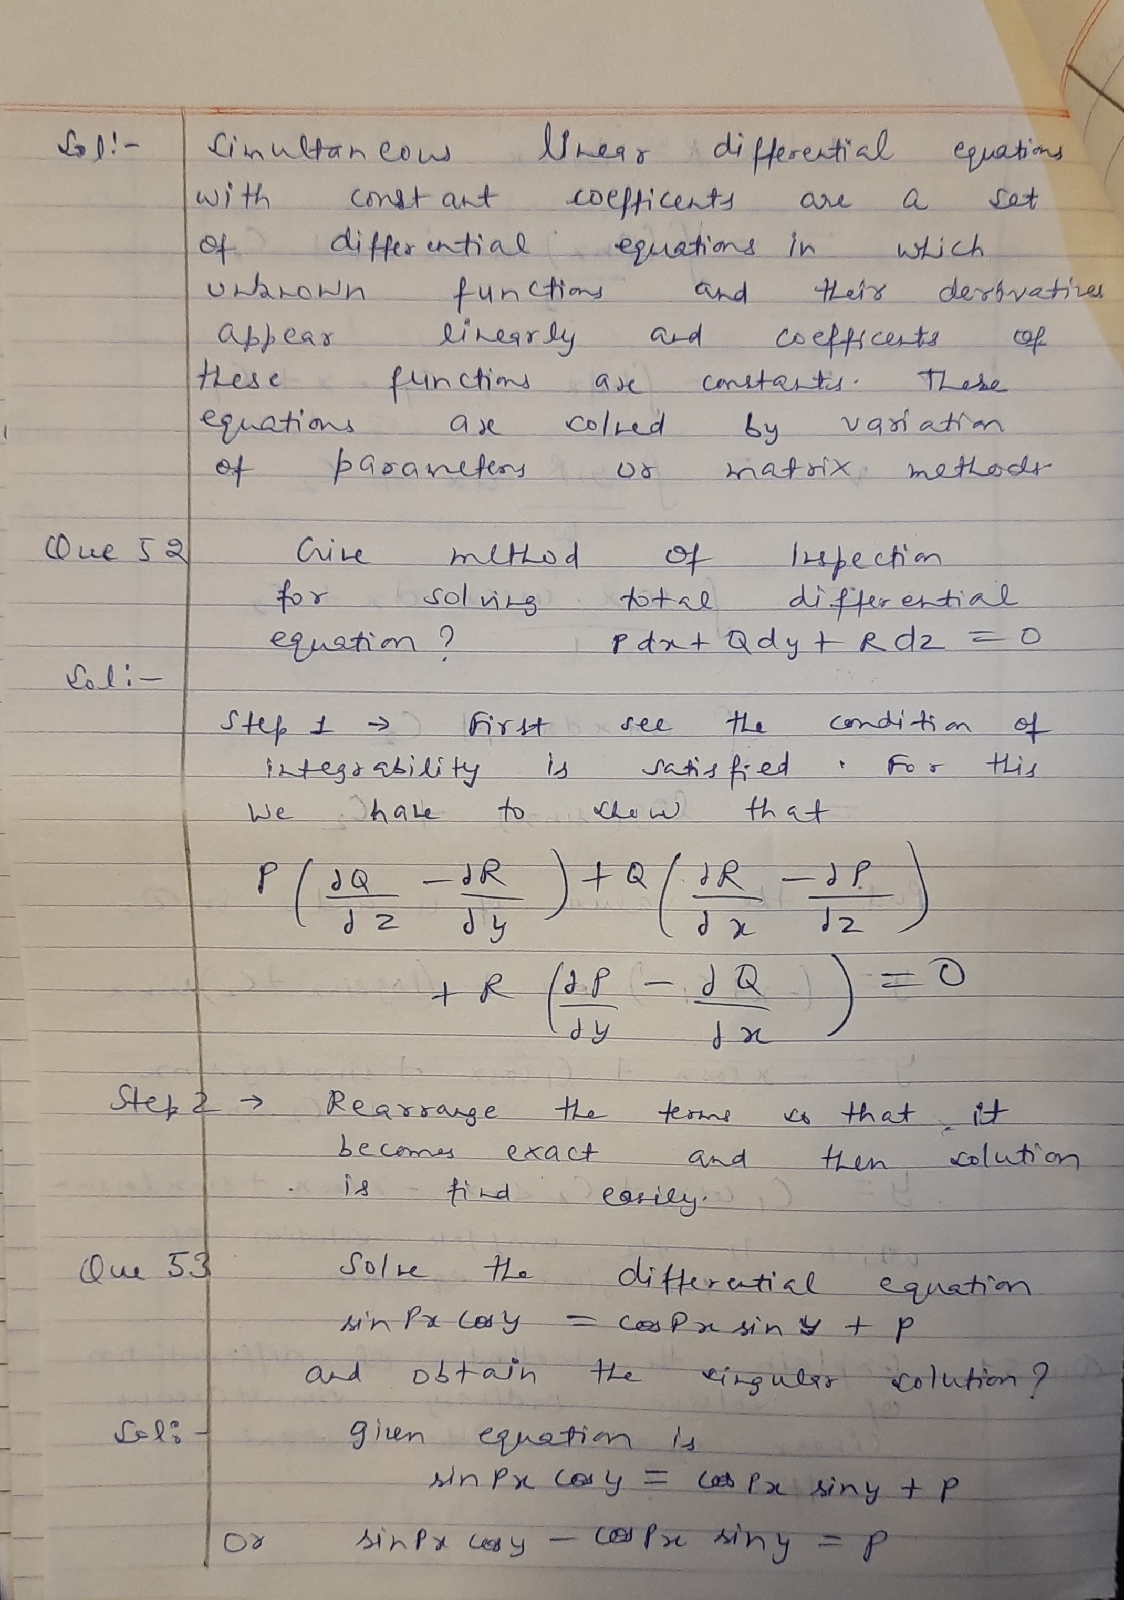 Sol:- Simultaneous linear differential equations
with constant coefficents are a set
of differential equations in which
unknown functions and their derivatives
appear linearly and coefficents of
these functions are constants. These
equations are solved by variation
of parameters or matrix methods
Que 52 Give method of Inspection
for solving total differential
equation? Pdx + Qdy + Rdz = 0
Sol:-
Step 1 → First see the condition of
integrability is satisfied. For this
we have to show that
P(∂Q/∂z - ∂R/∂y) + Q(∂R/∂x - ∂P/∂z)
+ R(∂P/∂y - ∂Q/∂x) = 0
Step 2 → Rearrange the terms so that it
becomes exact and then solution
is find easily.
Que 53 Solve the differential equation
sin Px cosy = cosPx sin y + P
and obtain the singular solution?
Sol:- given equation is
sin Px cosy = cos Px siny + P
Or sinPx cosy - cosPx siny = P